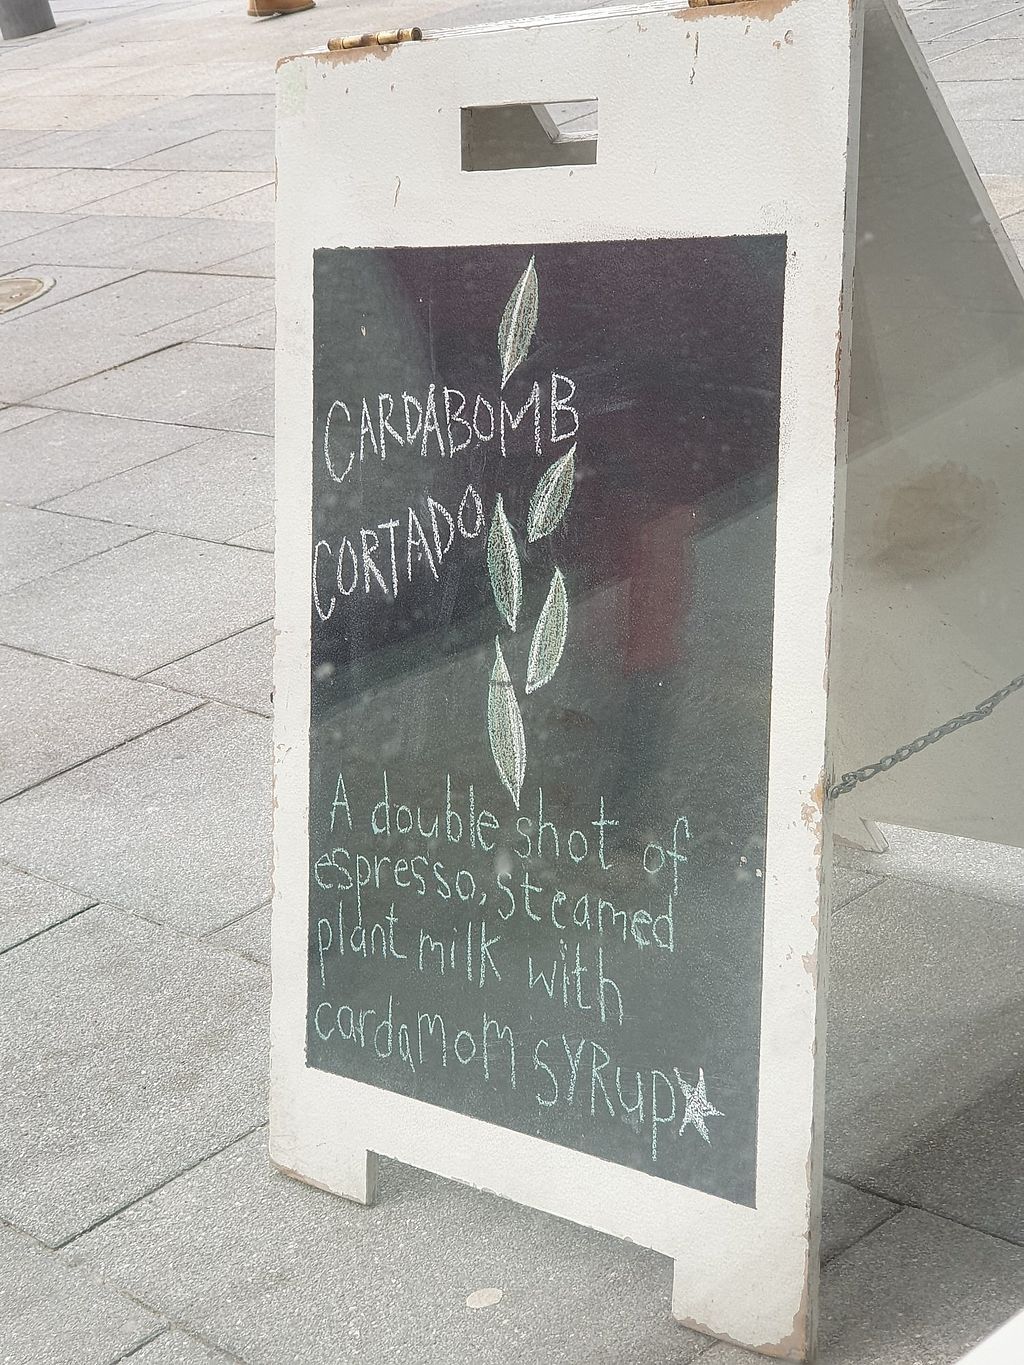 CARDABOMB
CORTADO
A double shot of
espresso, steamed
plant milk with
cardaMoM SYRup